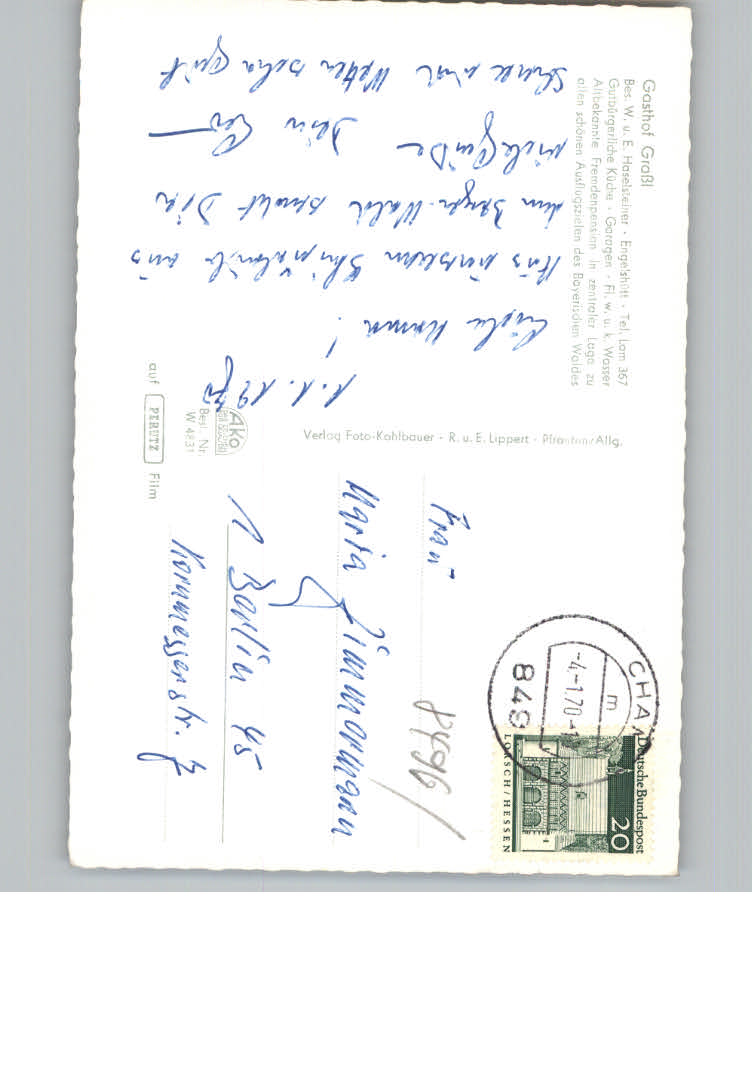 Gasthof Graßl
Bes. W. u. E. Haselsteiner · Engelshütt · Tel. Lam 367
Gutbürgerliche Küche · Garagen · Fl. w. u. k. Wasser
Altbekannte Fremdenpension in zentraler Lage zu
allen schönen Ausflugszielen des Bayerischen Waldes
1.1.1970
Liebe Mama!
aus
dem Bayr. Wald sendet Dir
viele Grüße Dein
Schnee und Wetter sehr gut
Verlag Foto-Kohlbauer - R. u. E. Lippert - Pfronten/Allg.
Ako
Best. Nr.
W 4831
auf PERUTZ Film
Frau
Maria Zimmermann
1 Berlin 45
Kornmesserstr. 7
8496
CHA
-4.-1.70-1
m
849
Deutsche Bundespost
20
LORSCH/HESSEN